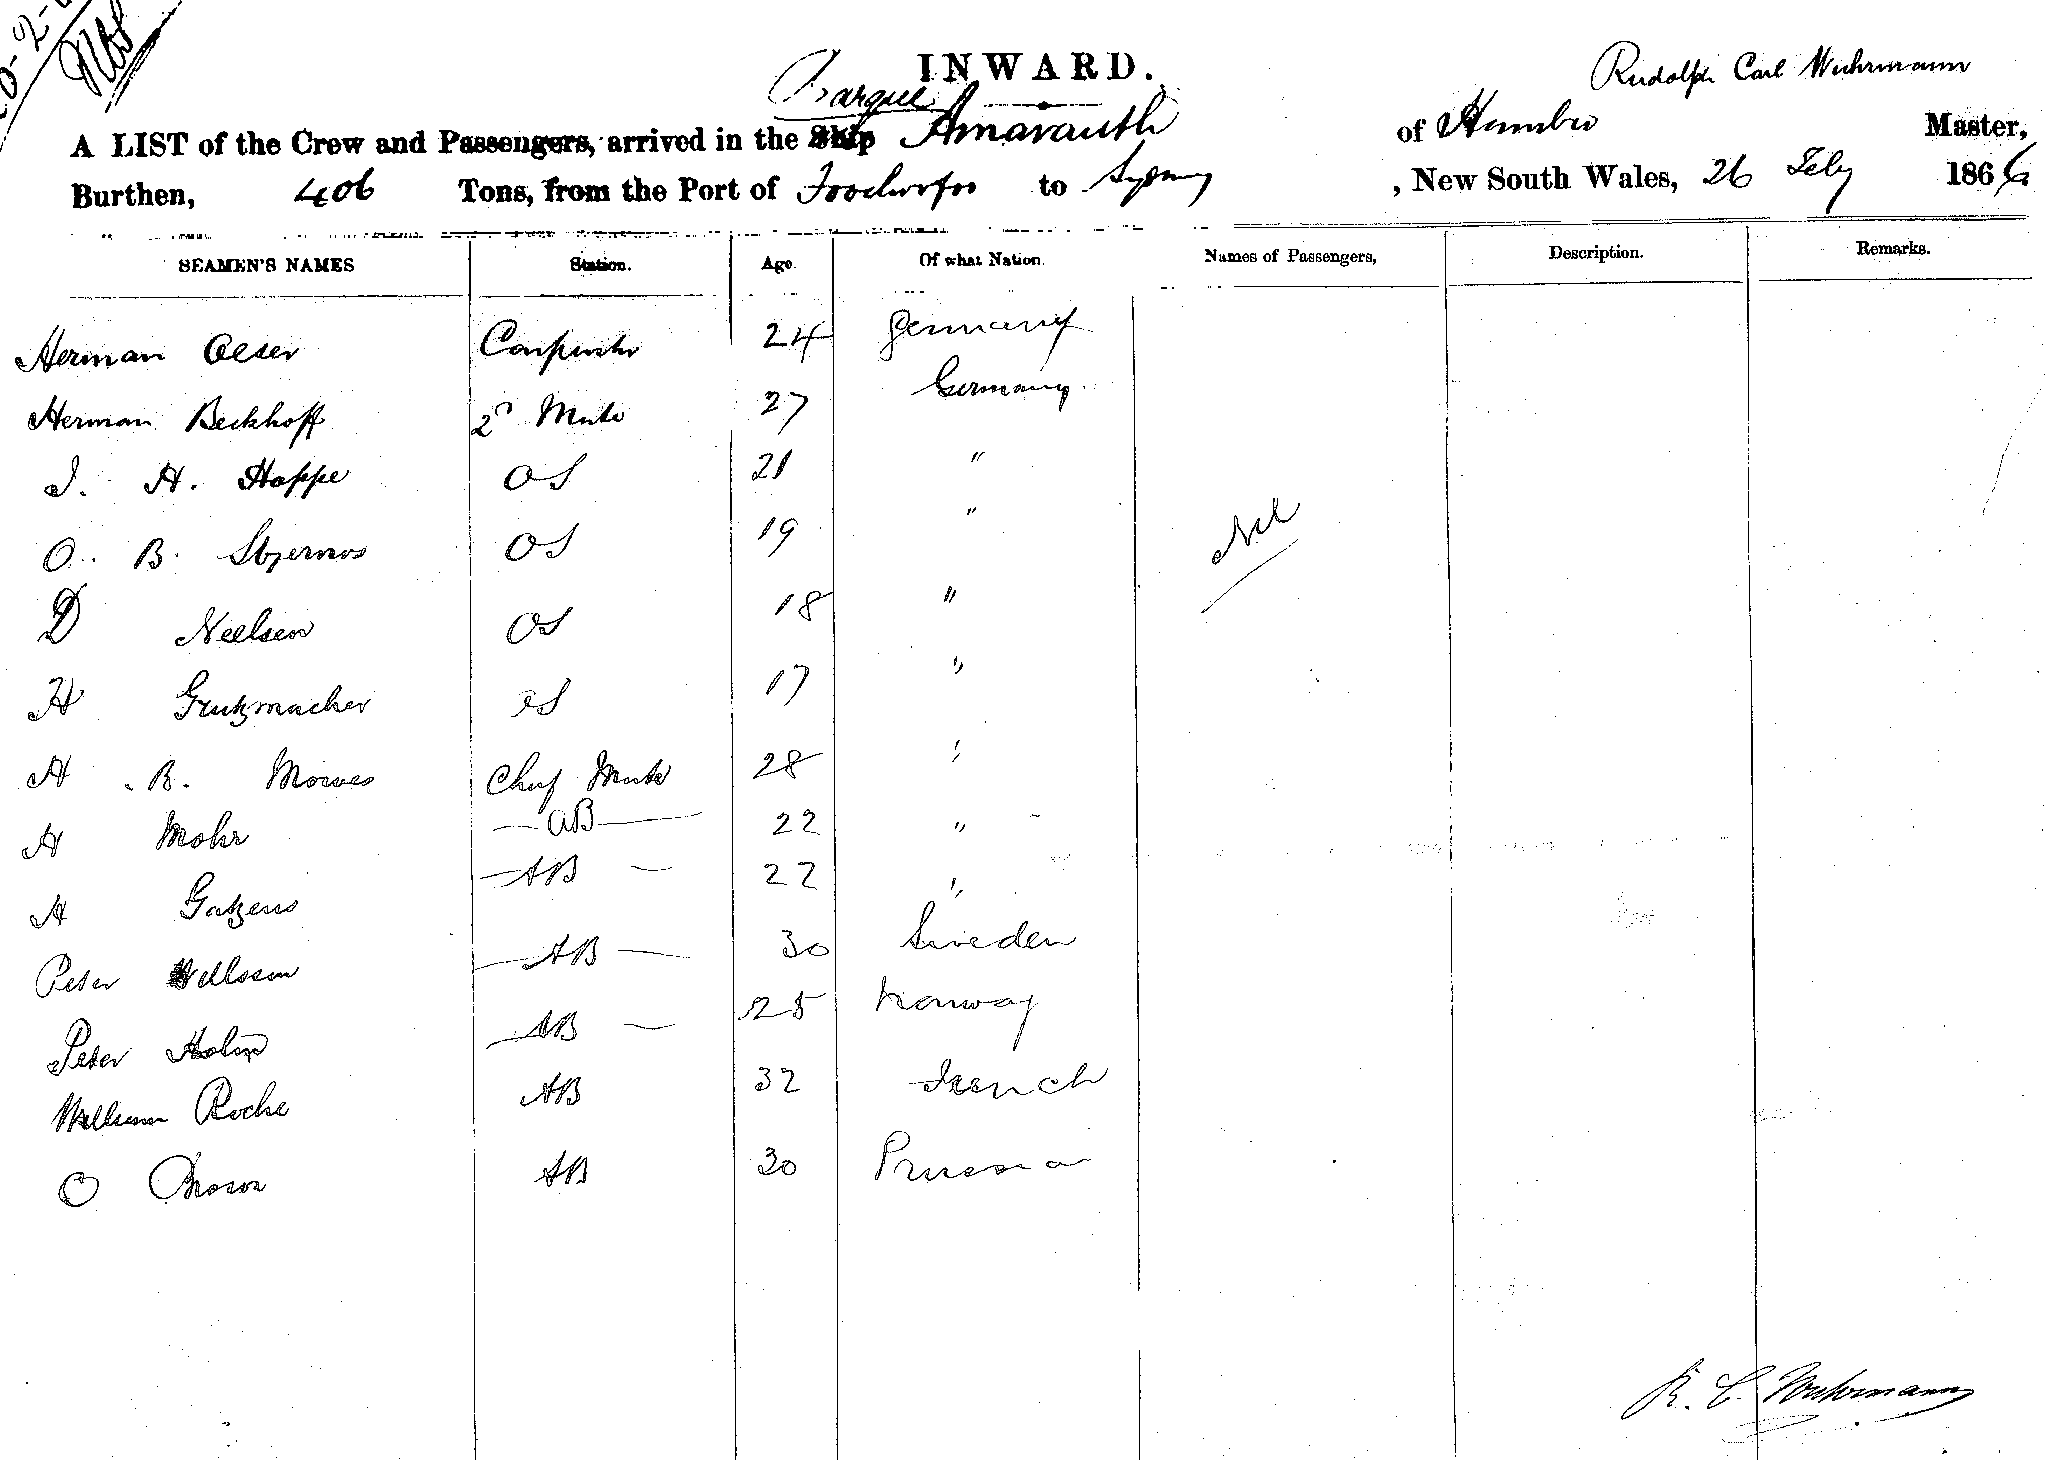 INWARD.
Rudolph Carl Wuhrmann
Barque
A LIST of the Crew and Passengers, arrived in the Ship Amaranth of Master,
Burthen, 406 Tons, from the Port of to Sydney , New South Wales, 26 Feby 1866
SEAMEN'S NAMES Station. Age. Of what Nation. Names of Passengers, Description. Remarks.
Herman Oeser Carpenter 24 Germany
Herman Beckhoff 2d Mate 27 Germany
J. H. Hoppe OS 21 "
O. B. OS 19 "
D Neelsen OS 18 "
H Grutzmacher OS 17 "
H . B. Chief Mate 28 "
H Mohr AB 22 "
H AB 22 "
Peter AB 30 Sweden
Peter Holm AB 25 Norway
William Roche AB 32 French
O AB 30 Prussia
Nil
R. C. Wuhrmann